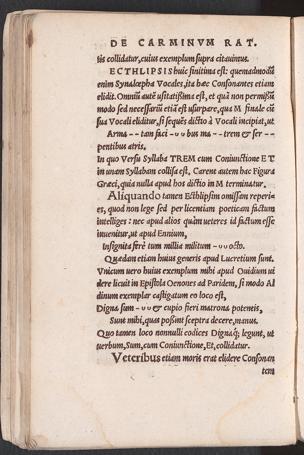 DE CARMINVM RAT.
tis collidatur, cuius exemplum supra citauimus.
ECTHLIPSIS huic finitima est: quemadmodũ
enim Synalœpha Vocales, ita hæc Consonantes etiam
elidit. Omniũ autẽ vsitatissima est, et quã non permissũ
modo sed necessariũ etiã est vsurpare, qua M finale cũ
sua Vocali eliditur, si sequẽs dictio à Vocali incipiat, ut
Arma -- tan fuci -υυ bus ma -- trem & ser --
pentibus atris.
In quo Versu Syllaba TREM cum Coniunctione ET
in unam Syllabam collisa est, Carent autem hac Figura
Græci, quia nulla apud hos dictio in M terminatur.
Aliquando tamen Ecthlipsim omissam reperi-
es, quod non lege sed per licentiam poeticam factum
intelliges: nec apud alios quàm ueteres id factum esse
inuenitur, ut apud Ennium,
Insignita ferè tum millia militum -υυ octo.
Quædam etiam huius generis apud Lucretium sunt.
Vnicum uero huius exemplum mihi apud Ouidium ui
dere licuit in Epistola Oenones ad Paridem, si modo Al
dinum exemplar castigatum eo loco est,
Digna sum -υυ & cupio fieri matrona potentis,
Sunt mihi, quas possint sceptra decere, manus.
Quo tamen loco nonnulli codices Dignaq; legunt, ut
uerbum, Sum, cum Coniunctione, Et, collidatur.
Veteribus etiam moris erat elidere Consonan
tem